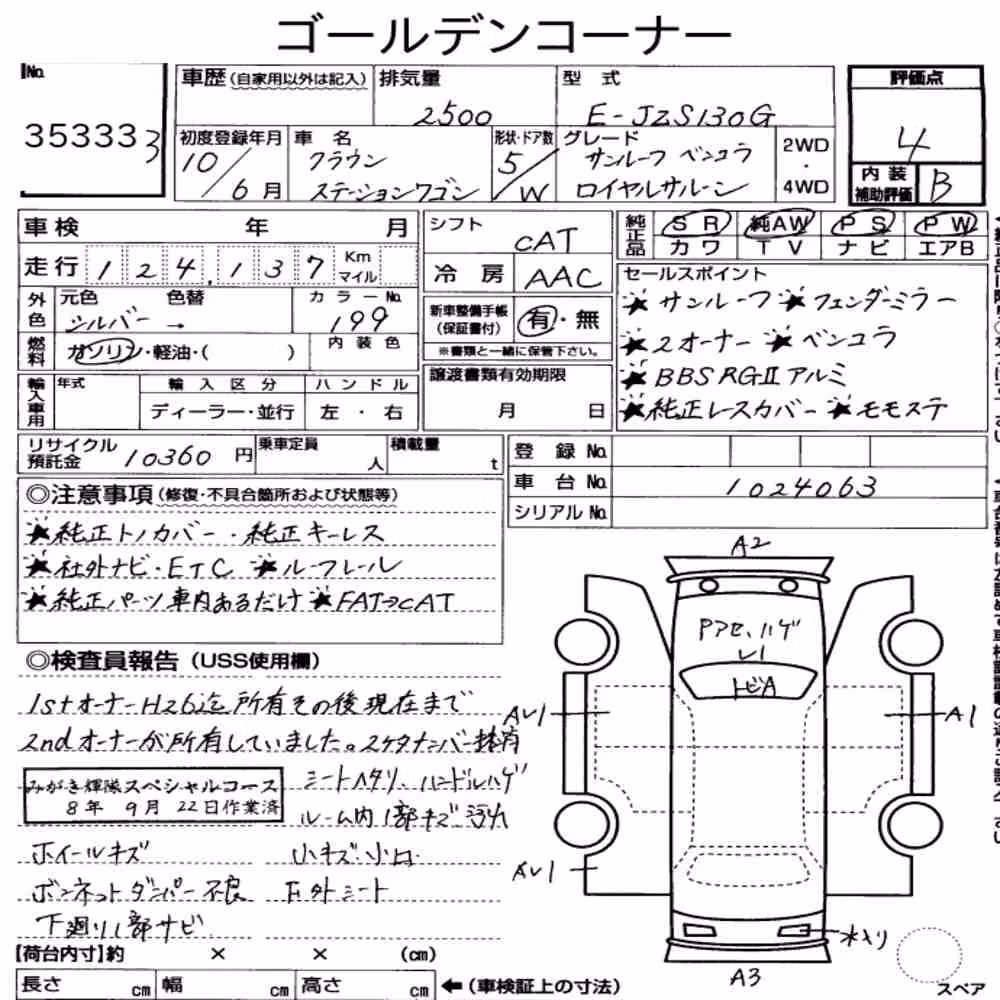 ゴールデンコーナー
No.
35333 3
車歴 (自家用以外は記入)
排気量
2500
型 式
E-JZS130G
評価点
4
内装補助評価
B
初度登録年月
10/6月
車 名
クラウン
ステーションワゴン
形状・ドア数
5/W
グレード
サンルーフ ベンコラ
ロイヤルサルーン
2WD
・
4WD
車検 年 月
走行 124,137 Km マイル
シフト
CAT
冷 房
AAC
純正品
SR 純AW PS PW
カワ TV ナビ エアB
外色
元色 色替
シルバー →
カラーNo.
199
新車整備手帳
(保証書付)
有・無
※書類と一緒に保管下さい。
燃料
ガソリン・軽油・( )
内装色
セールスポイント
★サンルーフ ★フェンダーミラー
★2オーナー ★ベンコラ
★BBSRGⅡアルミ
★純正レースカバー ★モモステ
輸入車用
年式
輸入区分
ディーラー・並行
ハンドル
左・右
譲渡書類有効期限
月 日
リサイクル預託金 10360 円
乗車定員
人
積載量
t
登録No.
車台No. 1024063
シリアルNo.
◎注意事項(修復・不具合箇所および状態等)
★純正トノカバー・純正キーレス
★社外ナビ・ETC ★ルーフレール
★純正パーツ車内あるだけ ★FAT→CAT
◎検査員報告(USS使用欄)
1stオーナーH26迄所有その後現在まで
2ndオーナーが所有していました。2ケタナンバー
みがき輝隊スペシャルコース
8年 9月 22日作業済
シートヘタリ、ハンドルハゲ
ルーム内1部キズ
ホイールキズ 小キズ・小凹
ボンネットダンパー不良
下廻り1部サビ
A2
Pアセ、ハゲ
トビA
A1
水入り
A3
スペア
【荷台内寸】約 × × (cm)
長さ cm 幅 cm 高さ cm
←(車検証上の寸法)